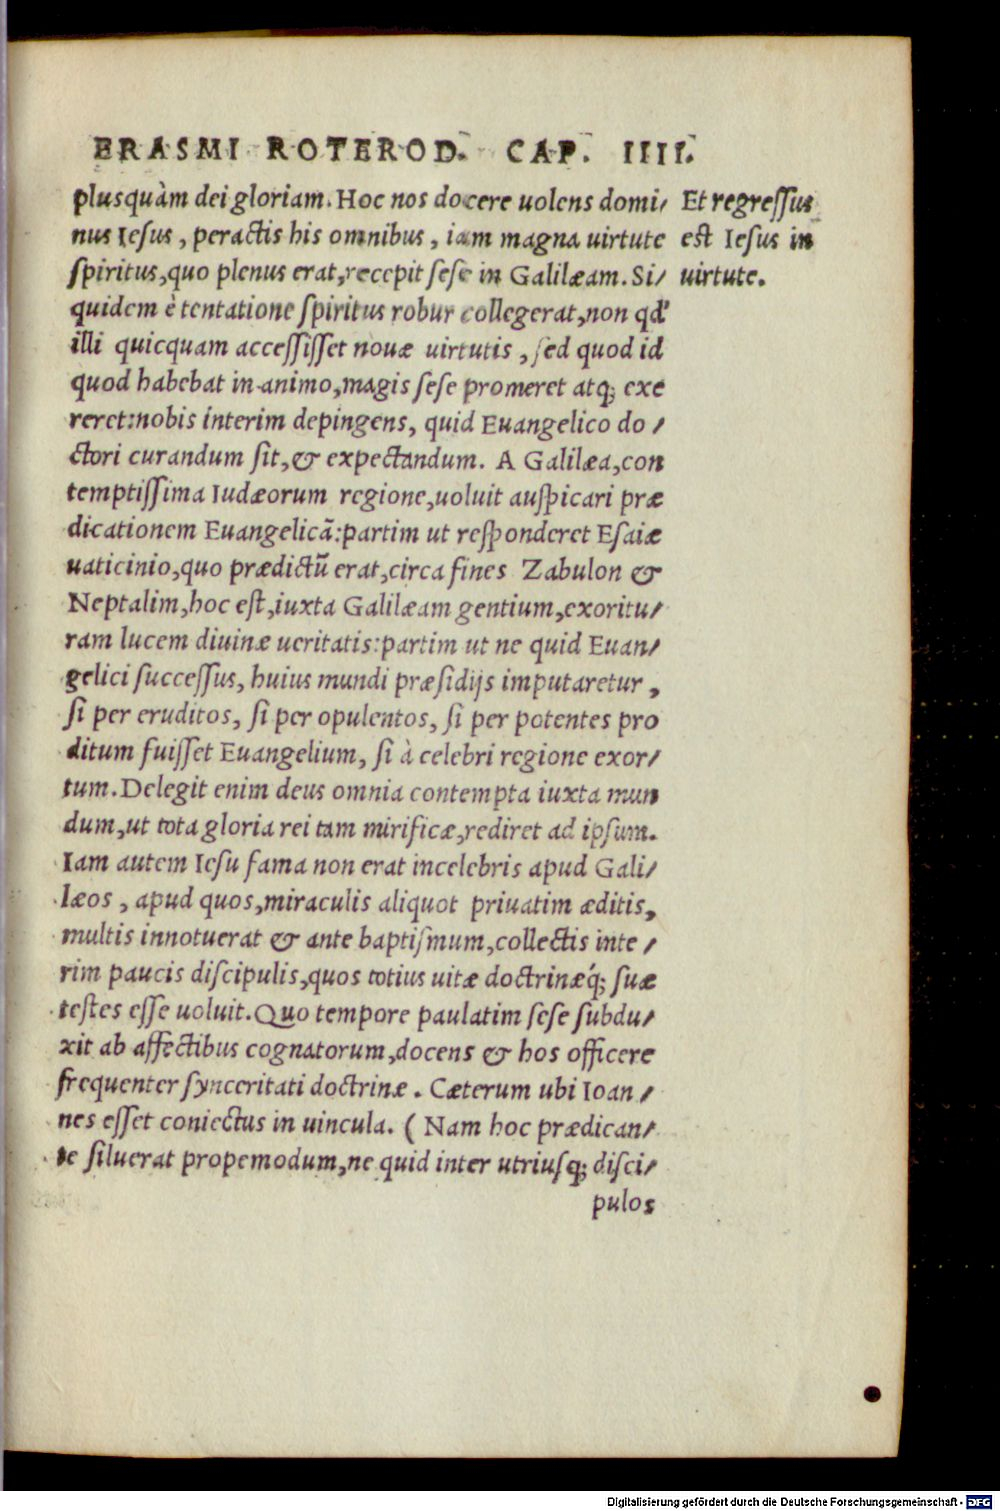 ERASMI ROTEROD. CAP. IIII.
plusquàm dei gloriam. Hoc nos docere uolens domi/
nus Iesus, peractis his omnibus, iam magna uirtute
spiritus, quo plenus erat, recepit sese in Galilæam. Si/
quidem è tentatione spiritus robur collegerat, non qđ
illi quicquam accessisset nouæ uirtutis, sed quod id
quod habebat in animo, magis sese promeret atq; exe
reret: nobis interim depingens, quid Euangelico do/
ctori curandum sit, & expectandum. A Galilæa, con
temptissima Iudæorum regione, uoluit auspicari præ
dicationem Euangelicã: partim ut responderet Esaiæ
uaticinio, quo prædictũ erat, circa fines Zabulon &
Neptalim, hoc est, iuxta Galilæam gentium, exoritu/
ram lucem diuinæ ueritatis: partim ut ne quid Euan/
gelici successus, huius mundi præsidijs imputaretur,
si per eruditos, si per opulentos, si per potentes pro
ditum fuisset Euangelium, si à celebri regione exor/
tum. Delegit enim deus omnia contempta iuxta mun
dum, ut tota gloria rei tam mirificæ, rediret ad ipsum.
Iam autem Iesu fama non erat incelebris apud Gali/
læos, apud quos, miraculis aliquot priuatim æditis,
multis innotuerat & ante baptismum, collectis inte/
rim paucis discipulis, quos totius uitæ doctrinæq́; suæ
testes esse uoluit. Quo tempore paulatim sese subdu/
xit ab affectibus cognatorum, docens & hos officere
frequenter synceritati doctrinæ. Cæterum ubi Ioan/
nes esset coniectus in uincula. (Nam hoc prædican/
te siluerat propemodum, ne quid inter utriusq; disci/
pulos
Et regressus
est Iesus in
uirtute.
Digitalisierung gefördert durch die Deutsche Forschungsgemeinschaft - DFG